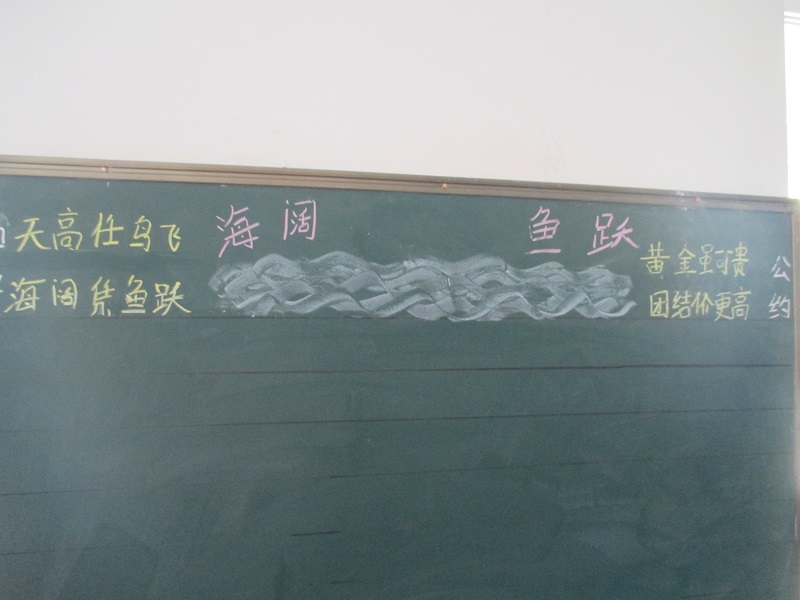 天高任鸟飞
海阔凭鱼跃
海阔 鱼跃
黄金虽可贵
团结价更高
公约